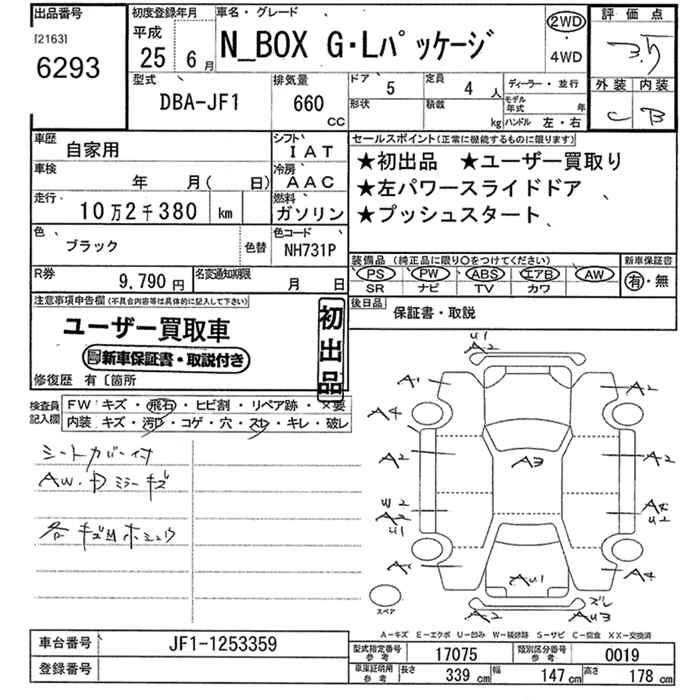 出品番号
[2163]
6293
初度登録年月
平成
25年6月
車名・グレード
N_BOX G・Lパッケージ
2WD
・
4WD
評価点
3.5
外装 内装
C B
型式
DBA-JF1
排気量
660
CC
ドア 5
形状
定員 4 人
積載 kg
ディーラー・並行
モデル年式 年
ハンドル 左・右
車歴
自家用
シフト
IAT
車検
年 月( 日)
冷房
AAC
走行
10万2千380 km
燃料
ガソリン
色
ブラック
色替
色コード
NH731P
R券
9,790円
名変通知期限
月 日
セールスポイント(正常に機能するものに限ります)
★初出品 ★ユーザー買取り
★左パワースライドドア
★プッシュスタート
装備品 (純正品に限り○をつけてください)
PS PW ABS エアB AW
SR ナビ TV カワ
新車保証書
有・無
後日品
保証書・取説
注意事項申告欄(不具合内容等は具体的に記入して下さい)
ユーザー買取車
新車保証書・取説付き
初出品
修復歴 有〔箇所
検査員記入欄
FW キズ・飛石・ヒビ割・リペア跡・×要
内装 キズ・汚レ・コゲ・穴・スレ・キレ・破レ
シートカバー付
AW・Dミラーキズ
各キズ凹ホシュウ
U1
A2
A1
A2
A4
A4
A2
A3
A2
W2
A2
U1
A4
U2
A1
AU1
A4
スペア
A2
ズレ
AU3
A―キズ E―エクボ U―凹み W―補修跡 S―サビ C―腐食 XX―交換済
車台番号
JF1-1253359
登録番号
型式指定番号
参考
17075
類別区分番号
参考
0019
車庫証明用
参考
長さ 339 cm
幅 147 cm
高さ 178 cm